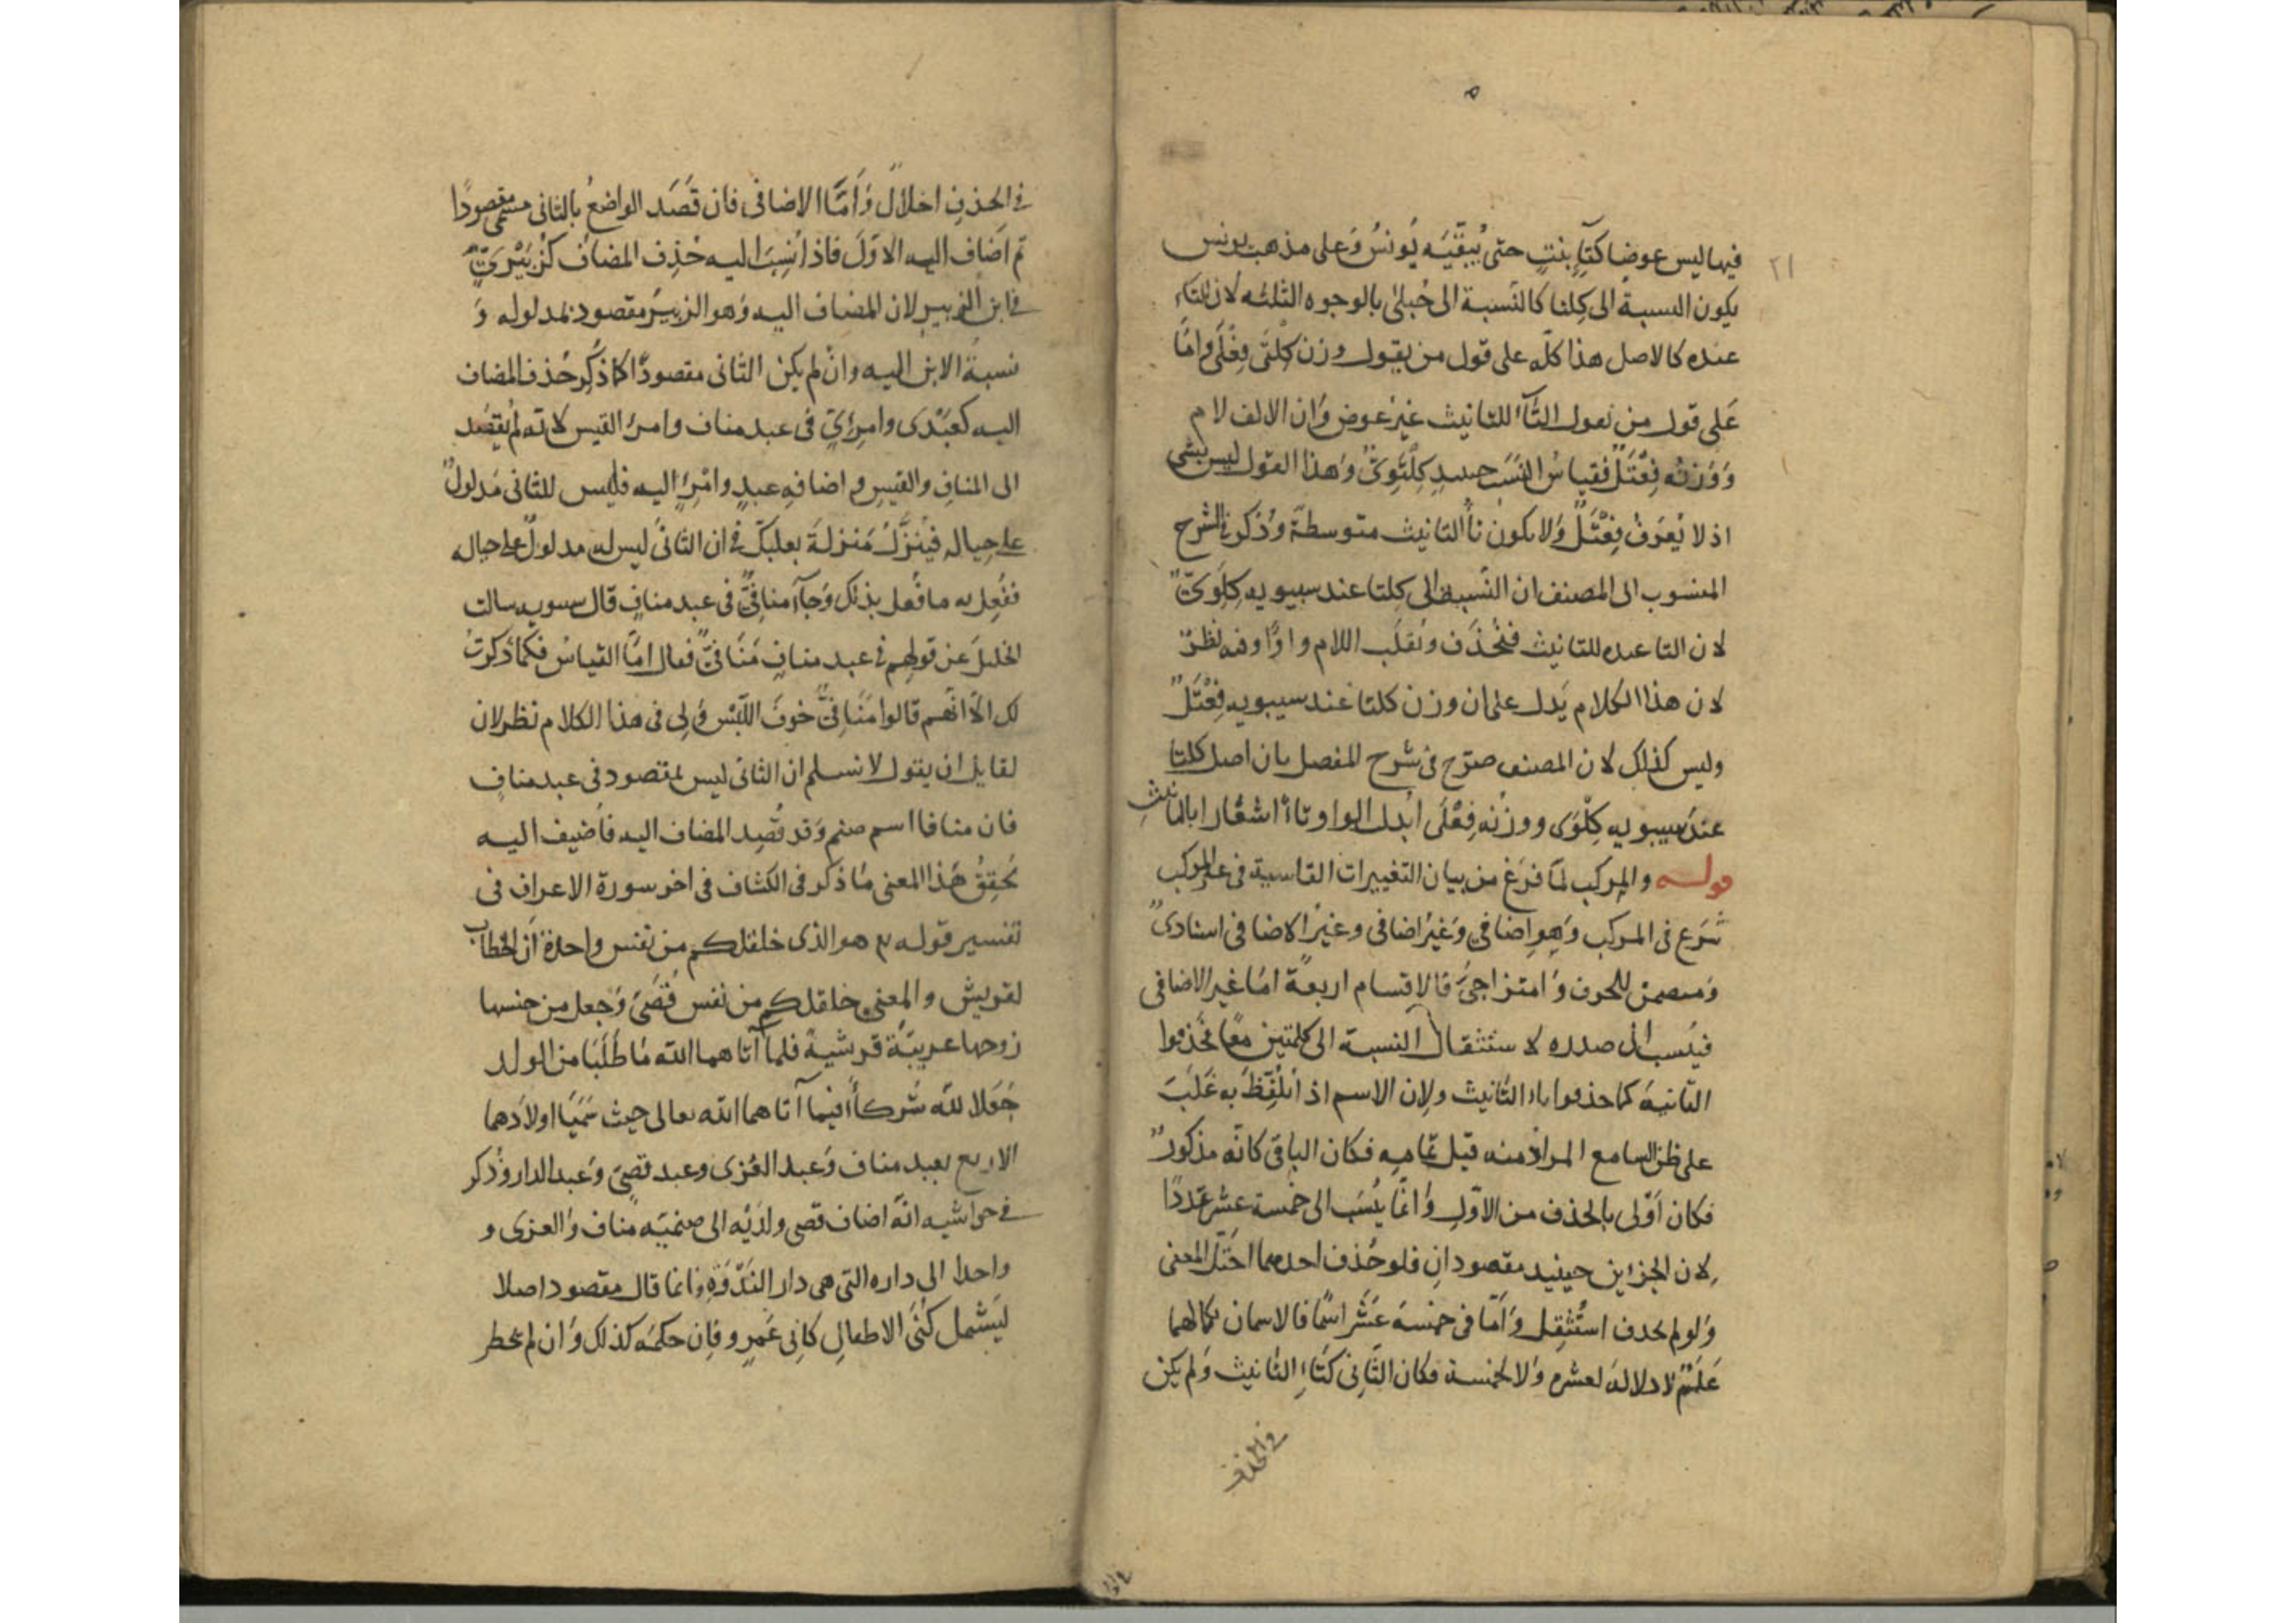 ٢١
فيها ليس عوضا كتاءِ بنتٍ حتى يُبقّيَه يُونسُ وَعلى مذهب يونس
يكون النسبةُ الى كِلتا كالنسبة الى حُبلىٰ بالوجوه الثلثه لان التاء
عنده كالاصل هذا كلّه على قول من يقول وزن كِلْتَى فِعْلَى وامّا
عَلى قول من يعول التّآءُ للتانيث غيرُ عوض وَان الالف لام
وَوَزنُه فِعْتَلٌ فقياسُ النسَب حينئذٍ كِلْتَوِىٌّ وَهذا القول ليس بشى
اذ لا يُعرَفُ فِعْتَلٌ وَلا يكون تاُ التانيث متوسطةً وذُكر فى الشرح
المنسوب الى المصنف ان النسبة الى كِلتا عند سيبويه كِلَوِىٌّ
لان التا عنده للتانيث فتُحذَف وتُقلَب اللام واوًا وفيه نظرٌ
لان هذا الكلام يَدل على ان وزن كلتا عند سيبويه فِعْتَلٌ
وليس كذلك لان المصنف صرّح فى شرح المفصل بان اصل كلتا
عند سيبويه كِلْوَى ووزنُه فِعْلَى ابُدل الواو تاءً اشعارا بالتانيثِ
قولــه والمركب لمّا فرَغ من بيان التغييرات القاسية فى غير المركب
شرَع فى المركب وَهو اِضافىٌ وَغيرُ اضافى وغيرُ الاضافى اسنادىٌ
وَمتضمن للحرف وَامتزاجىٌّ فالاقسام اربعةً امّا غير الاضافى
فيُنسب الى صدره لاستثقال النسبة الى كلمتين معًا فحُذفوا
الثانيةَ كما حذفوا تاء التانيث ولان الاسم اذا تُلُفِّظَ به غَلَبَ
على ظن السامع المرادُ منه قبل تمامِه فكان الباقى كانّه مذكورٌ
فكان اَوْلى بالحذف من الاوّلِ وَانّما يُنسَب الى خمسة عشَر عَدَدًا
لان الجزأين حينيذ مقصودانِ فلو حُذف احدهما اختلّ المعنى
وَلو لم يحذف استُثقِل وَامّا فى خمسةَ عَشَر اسمًا فالاسمان بكمالهما
عَلَمٌ لا دلالةَ لعشرة وَلا لخمسة فكان الثّانِى كَتَاءِ التانيث وَلم يكن
فى الحذف
فى الحذفِ اخلالٌ وَاَمّا الاضافى فان قَصَد الواضعُ بالثانى مسمًّى مقصودًا
ثم اَضاف اليه الاوّلَ فاذا نُسِبَ اليه حُذِف المضافُ كزُبَيْرِىٍّ
فى ابن الزبير لان المضاف اليه وَهو الزبيرُ مقصود بمدلوله وَ
نسبةُ الابن اليه وانْ لم يكن الثانى مقصودًا كما ذُكِر حُذف المضاف
اليه كعَبْدِىٍ وامرِئىٍ فى عبد مناف وامرئ القيس لانه لم يُقصَد
الى المنافِ والقيسِ واضافةِ عبدٍ وامْرِئٍ اليه فليس للثانى مَدلولٌ
على حِيالِه فيُنزَّلُ مَنزلةَ بعلبكّ فى ان الثانىَ ليس له مدلولٌ على حياله
ففُعِل به ما فُعل بذلك وَجآءَ منافِىٌّ فى عبد منافٍ قال سيبويه سالت
الخليلَ عن قولهم فى عبد منافٍ مَنَافىٌّ فقال امّا القياسُ فكما ذكرتُ
لك الّا انّهم قالوا مَنَافِىٌّ خوفَ اللّبْس وَلى فى هذا الكلام نظر لان
لقايل ان يقول لا نسلم ان الثانى ليس بمقصود فى عبد منافٍ
فان منافا اسم صنم وَقد قُصِد المضاف اليه فاُضيف اليه
يُحقِقُ هَذا المعنى مَا ذكر فى الكشاف فى اخر سورة الاعراف فى
تفسير قولــه تع هو الذى خلقكم من نفس واحدة اَن الخطاب
لقريش والمعنى خلقكم من نفس قُصَىّ وَجعل من جنسها
زوجها عربيّةً قرشيةً فلما آتاهما الله مَا طَلَبَا من الولد
جَعَلا لله شُركاءَ فيما آتاهما الله تعالى حيث سَمَّيَا اولادَهما
الاربع بعبد مناف وَعبد العُزى وعبد قُصىّ وَعبد الدار وذُكر
فى حواشيه انّه اضاف قصى ولدَيْه الى صنميَه مناف وَالعزى و
واحدا الى داره التى هى دار النَدْوَةِ وانما قال مقصود اصلا
ليَشمل كُنَى الاطفالِ كابى عَمرو فاِن حكمَه كذلك وَان لم يخطر